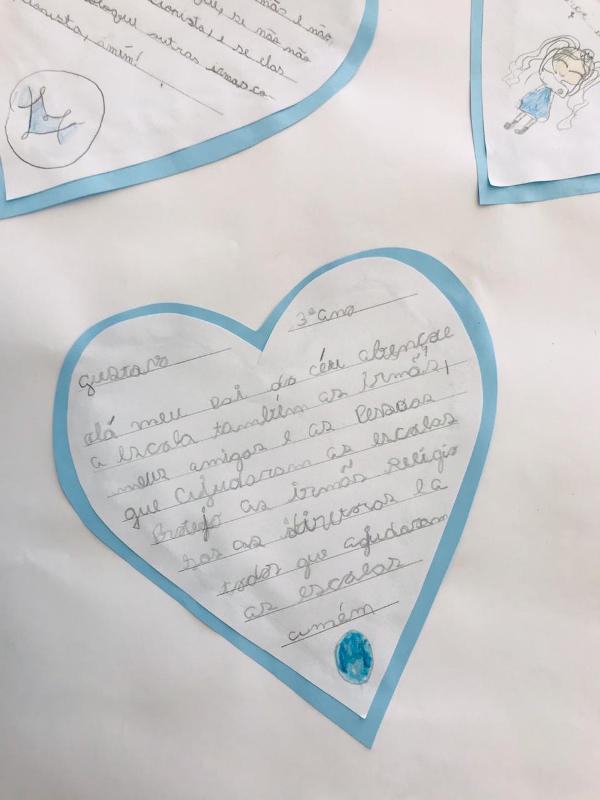 se não não
e se elas
outras irmãs co
amém!
3º ano
Gustavo
olá meu pai do céu abençoe
a escola também as irmãs,
meus amigos e as pessoas
que ajudaram as escolas
Proteja as irmãs Religio
sas as diretoras e a
todos que ajudaram
as escolas
amém